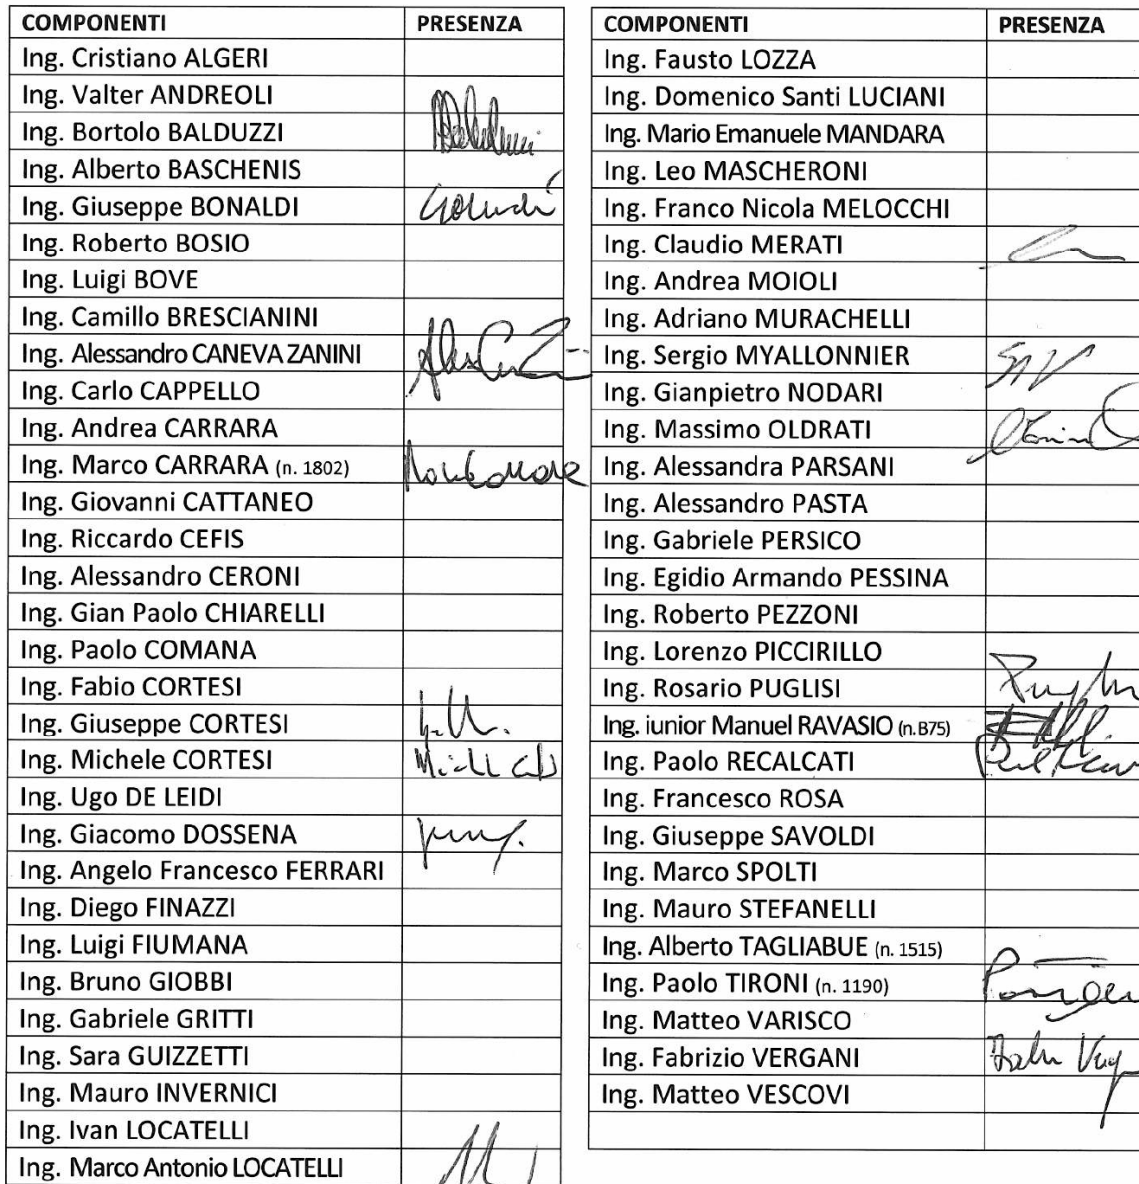 COMPONENTI PRESENZA
Ing. Cristiano ALGERI
Ing. Valter ANDREOLI
Ing. Bortolo BALDUZZI
Ing. Alberto BASCHENIS
Ing. Giuseppe BONALDI
Ing. Roberto BOSIO
Ing. Luigi BOVE
Ing. Camillo BRESCIANINI
Ing. Alessandro CANEVA ZANINI
Ing. Carlo CAPPELLO
Ing. Andrea CARRARA
Ing. Marco CARRARA (n. 1802)
Ing. Giovanni CATTANEO
Ing. Riccardo CEFIS
Ing. Alessandro CERONI
Ing. Gian Paolo CHIARELLI
Ing. Paolo COMANA
Ing. Fabio CORTESI
Ing. Giuseppe CORTESI
Ing. Michele CORTESI
Ing. Ugo DE LEIDI
Ing. Giacomo DOSSENA
Ing. Angelo Francesco FERRARI
Ing. Diego FINAZZI
Ing. Luigi FIUMANA
Ing. Bruno GIOBBI
Ing. Gabriele GRITTI
Ing. Sara GUIZZETTI
Ing. Mauro INVERNICI
Ing. Ivan LOCATELLI
Ing. Marco Antonio LOCATELLI
COMPONENTI PRESENZA
Ing. Fausto LOZZA
Ing. Domenico Santi LUCIANI
Ing. Mario Emanuele MANDARA
Ing. Leo MASCHERONI
Ing. Franco Nicola MELOCCHI
Ing. Claudio MERATI
Ing. Andrea MOIOLI
Ing. Adriano MURACHELLI
Ing. Sergio MYALLONNIER
Ing. Gianpietro NODARI
Ing. Massimo OLDRATI
Ing. Alessandra PARSANI
Ing. Alessandro PASTA
Ing. Gabriele PERSICO
Ing. Egidio Armando PESSINA
Ing. Roberto PEZZONI
Ing. Lorenzo PICCIRILLO
Ing. Rosario PUGLISI
Ing. iunior Manuel RAVASIO (n. B75)
Ing. Paolo RECALCATI
Ing. Francesco ROSA
Ing. Giuseppe SAVOLDI
Ing. Marco SPOLTI
Ing. Mauro STEFANELLI
Ing. Alberto TAGLIABUE (n. 1515)
Ing. Paolo TIRONI (n. 1190)
Ing. Matteo VARISCO
Ing. Fabrizio VERGANI
Ing. Matteo VESCOVI